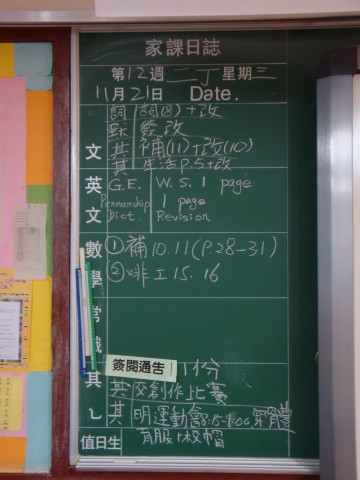 家課日誌
第12週 二丁 星期三
11月21日 Date.
詞 詞(8)+改
默 簽改
文 其 補(11)+改(10)
其 生活P.5+改
英 G.E. W.S. 1 page
Penmanship 1 page
文 Dict. Revision
數 ①補10.11(P.28-31)
學 ②啡工15.16
常
識
簽閱通告 1份
其 其 交創作比賽
乜 其 明運動會8:15-1:00穿體
育服+校帽
值日生